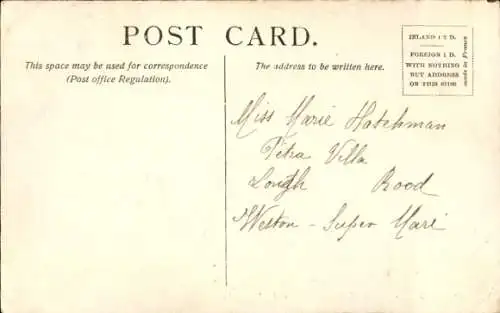 POST CARD.
This space may be used for correspondence
(Post office Regulation).
The address to be written here.
INLAND ½ D.
FOREIGN 1 D.
WITH NOTHING
BUT ADDRESS
ON THIS SIDE
made in France
Miss Marie Hatchman
Petra Villa
Road
Weston - Super Mare